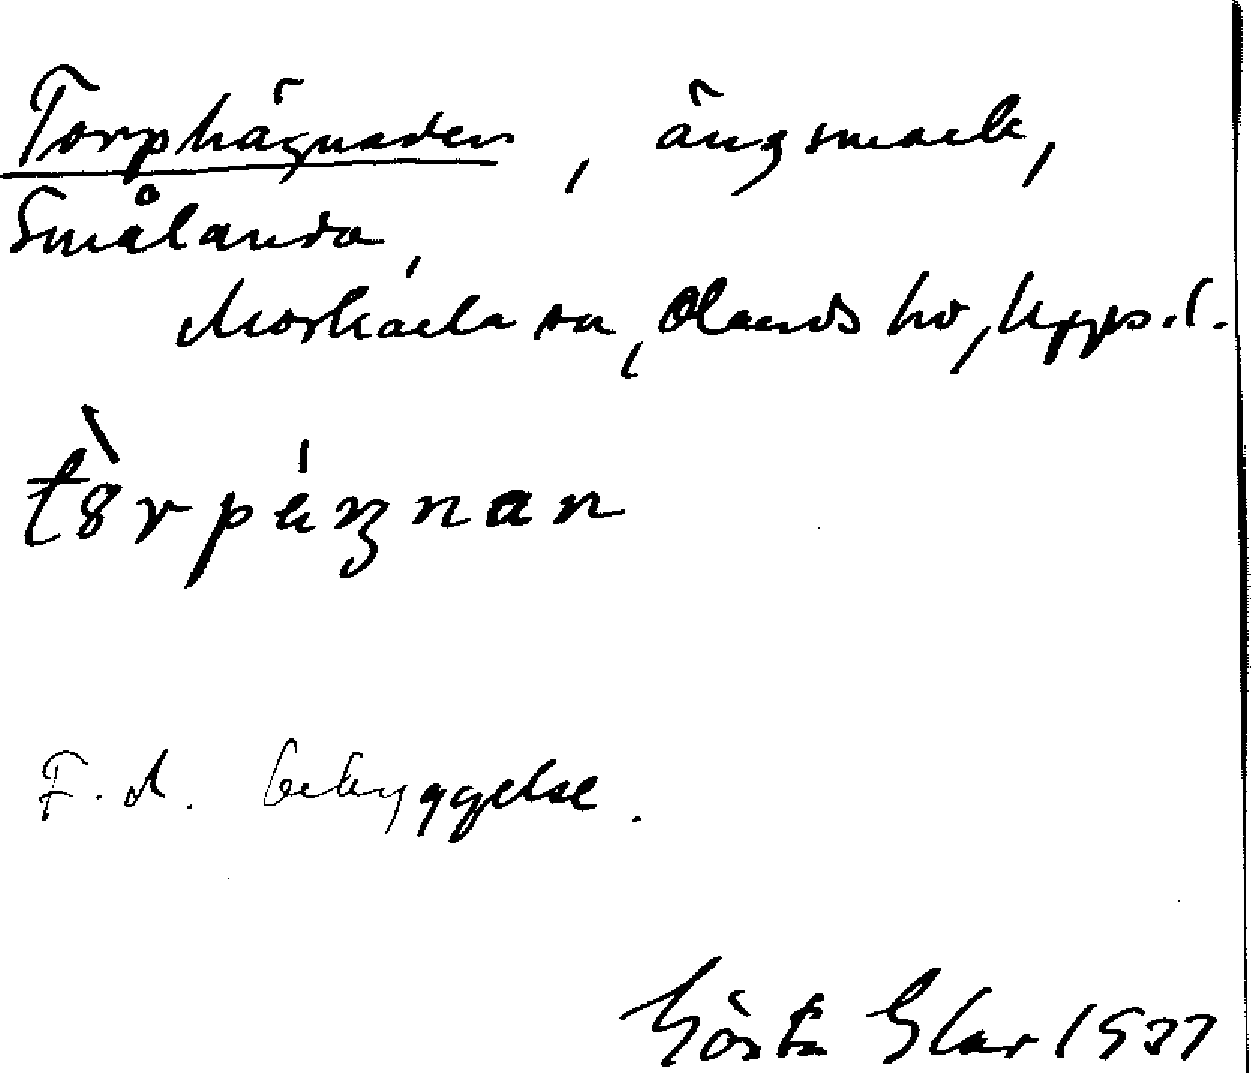 Torphägnaden, ängsmark,
Smålanda,
Morkarla sn, Olands hd, Upps. l.
F. d. bebyggelse.
Gösta 1937